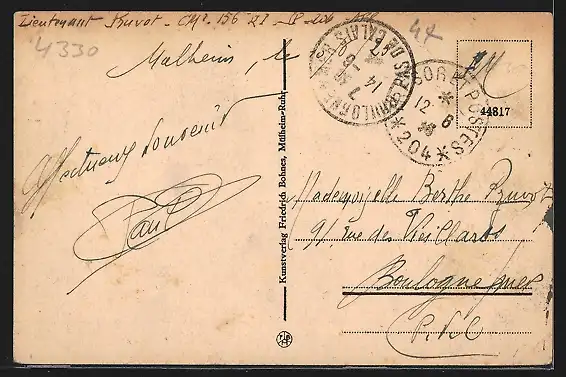 Lieutenant Ruvot - CMI. 156 RI - SP. 204
4330
Malheim, le
44
Affectueux souvenir
Paul
Kunstverlag Friedrich Bohnes, Mülheim-Ruhr
BOULOGNE PAS DE CALAIS
14
POSTES
12 6
* 204 *
44817
Mademoiselle Berthe Ruvot
91 rue des Vieillards
Boulogne s mer
P. d. C